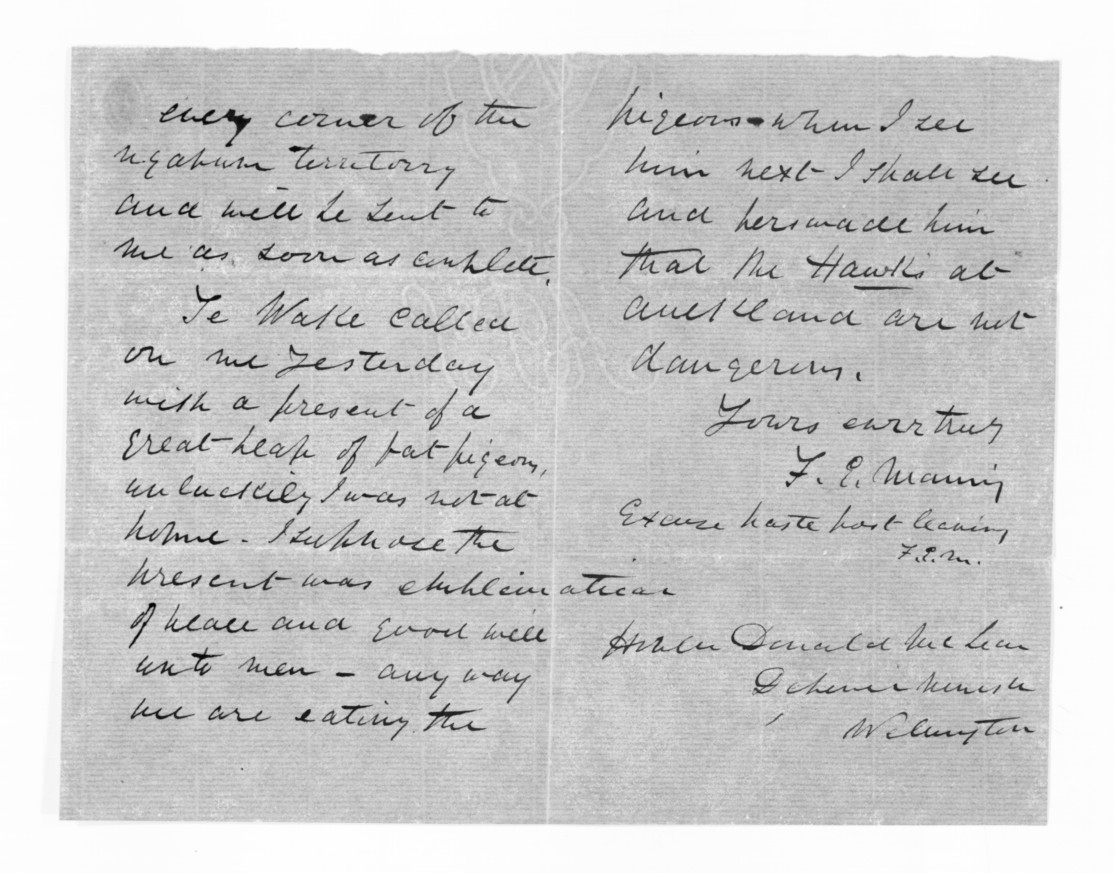 every corner of the
ngapuhi territory
and will be sent to
me as soon as complete.
Te Wake called
on me yesterday
with a present of a
great heap of fat pigeons,
unluckily I was not at
home - I suppose the
present was emblematical
of peace and good will
unto men - any way
we are eating the
pigeons - when I see
him next I shall see
and perswade him
that the Hawks at
auckland are not
dangerous.
Yours ever truly
F. E. Maning
Excuse haste post leaving
F.E.M.
Honble Donald McLean
Defence Minister
Wellington